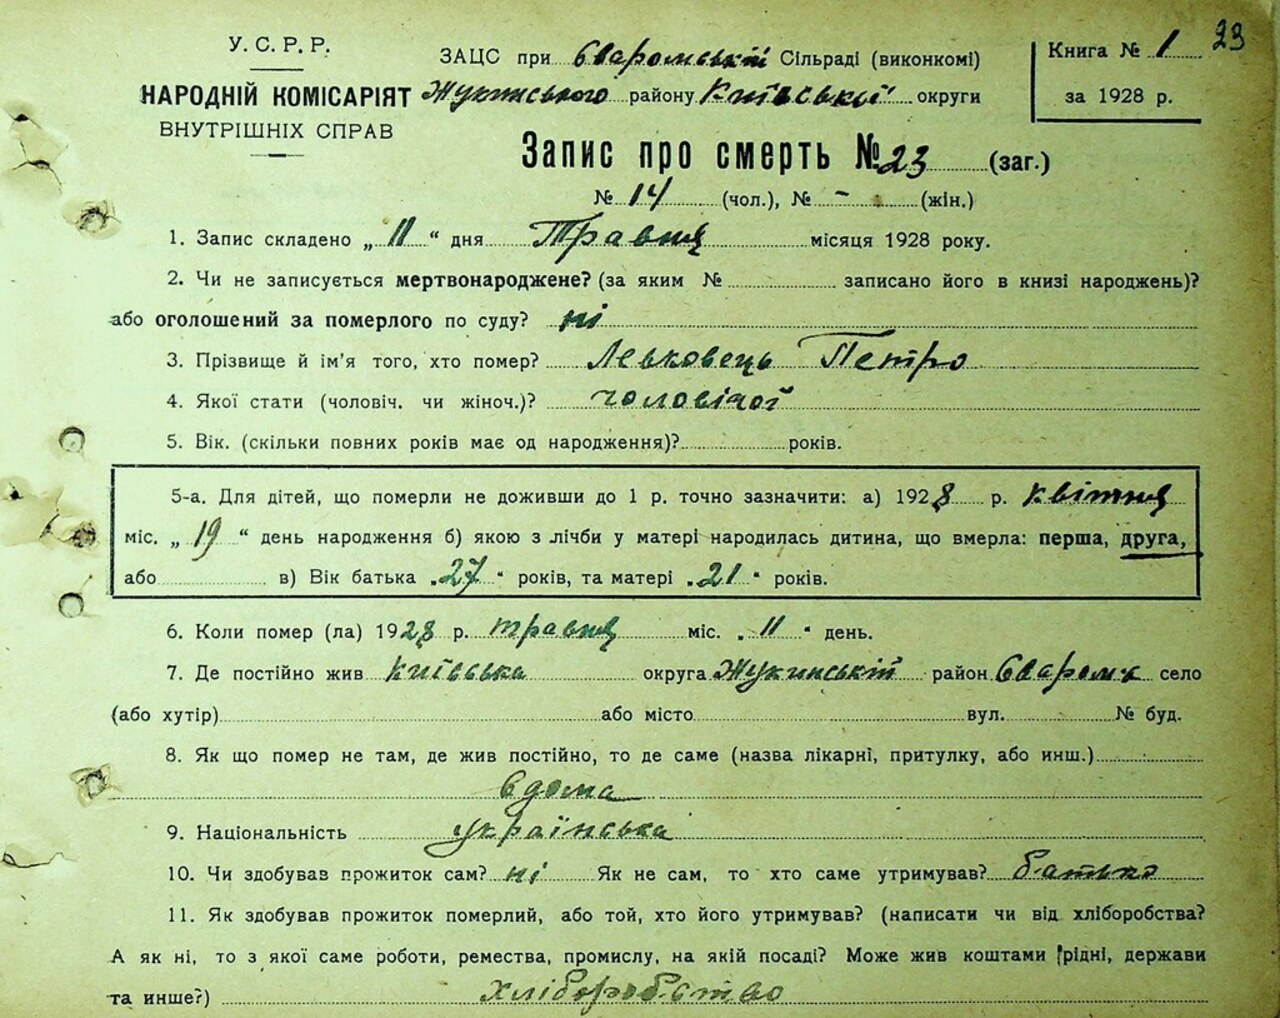 23
У. С. Р. Р.
НАРОДНІЙ КОМІСАРІЯТ
ВНУТРІШНІХ СПРАВ
ЗАЦС при Сваромській Сільраді (виконкомі)
Жукинського району Київської округи
Книга № 1
за 1928 р.
Запис про смерть № 23 (заг.)
№ 14 (чол.), № - (жін.)
1. Запис складено „ 11 “ дня Травня місяця 1928 року.
2. Чи не записується мертвонароджене? (за яким № записано його в книзі народжень)?
або оголошений за померлого по суду? ні
3. Прізвище й ім'я того, хто помер? Левковець Петро
4. Якої стати (чоловіч. чи жіноч.)? чоловічої
5. Вік. (скільки повних років має од народження)? років.
5-а. Для дітей, що померли не доживши до 1 р. точно зазначити: а) 1928 р. квітня
міс. „ 19 “ день народження б) якою з лічби у матері народилась дитина, що вмерла: перша, друга,
або в) Вік батька „27“ років, та матері „21“ років.
6. Коли помер (ла) 1928 р. травня міс. „ 11 “ день.
7. Де постійно жив Київська округа Жукинській район Сваромя село
(або хутір) або місто вул. № буд.
8. Як що помер не там, де жив постійно, то де саме (назва лікарні, притулку, або инш.)
вдома
9. Національність українська
10. Чи здобував прожиток сам? ні Як не сам, то хто саме утримував? батько
11. Як здобував прожиток померлий, або той, хто його утримував? (написати чи від хліборобства?
А як ні, то з якої саме роботи, ремества, промислу, на якій посаді? Може жив коштами рідні, держави
та инше?) хліборобство